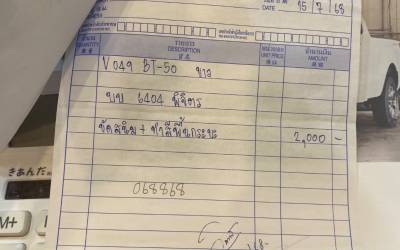 DATE 15/7/68
จำนวน รายการ หน่วยละ จำนวนเงิน
QUANTITY DESCRIPTION UNIT PRICE AMOUNT
V049 BT-50 ขาว
บบ 6404 พิจิตร
ขัดสนิม + ทำสีพื้นกระบะ 2,000 -
068868
きあんだ
M+